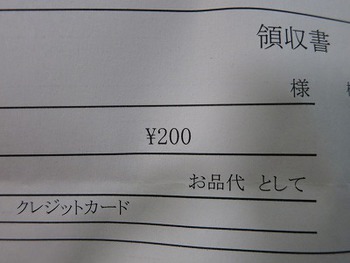 領収書
様
¥200
お品代 として
クレジットカード